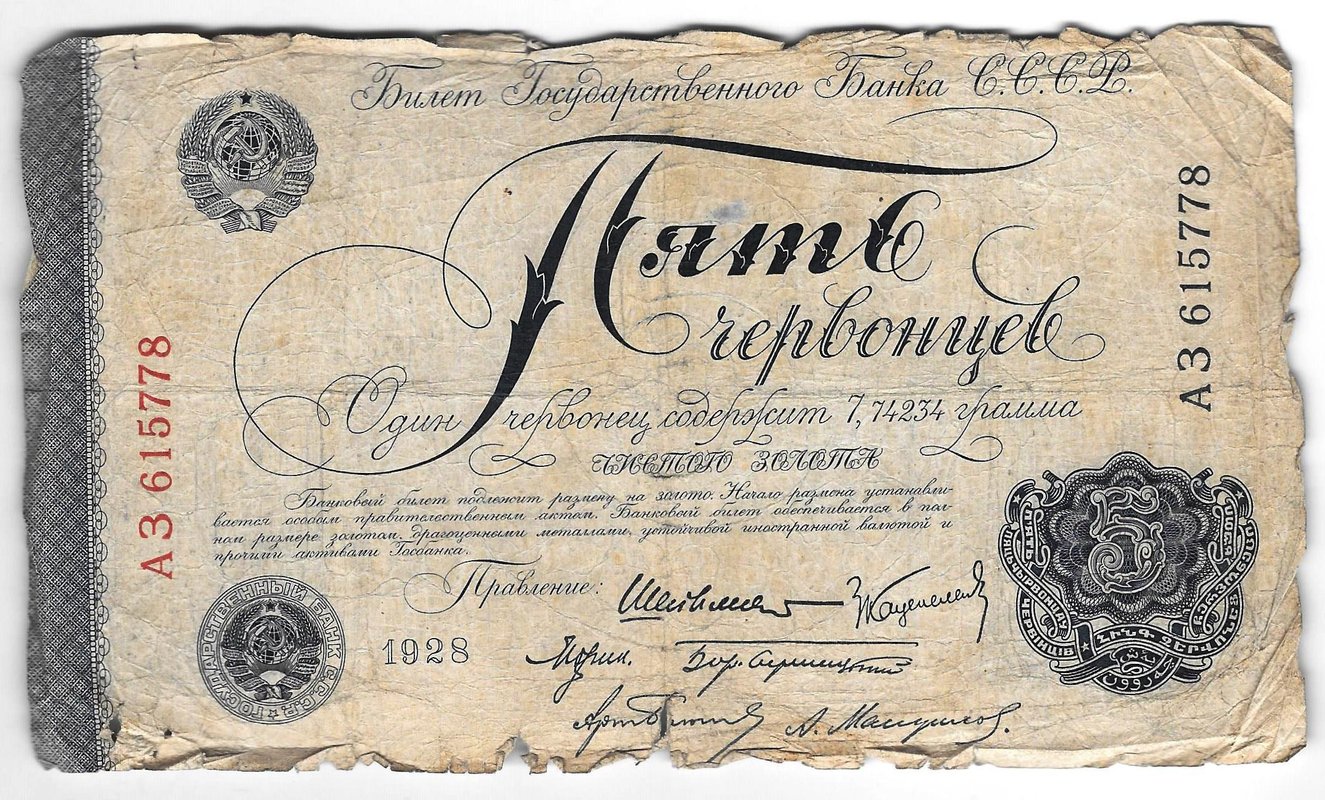 Билет Государственного Банка С.С.С.Р.
Пять
червонцев
Один червонец содержит 7,74234 грамма
чистого золота
Банковый билет подлежит размену на золото. Начало размена устанавли-
вается особым правительственным актом. Банковый билет обеспечивается в пол-
ном размере золотом, драгоценными металлами, устойчивой иностранной валютой и
прочими активами Госбанка.
Правление:
1928
АЗ 615778
АЗ 615778
ГОСУДАРСТВЕННЫЙ БАНК С.С.С.Р.
5
ПЯТЬ
ЧЕРВІНЦІВ
ՀԻՆԳ ՉԵՐՎՈՆԵՑ